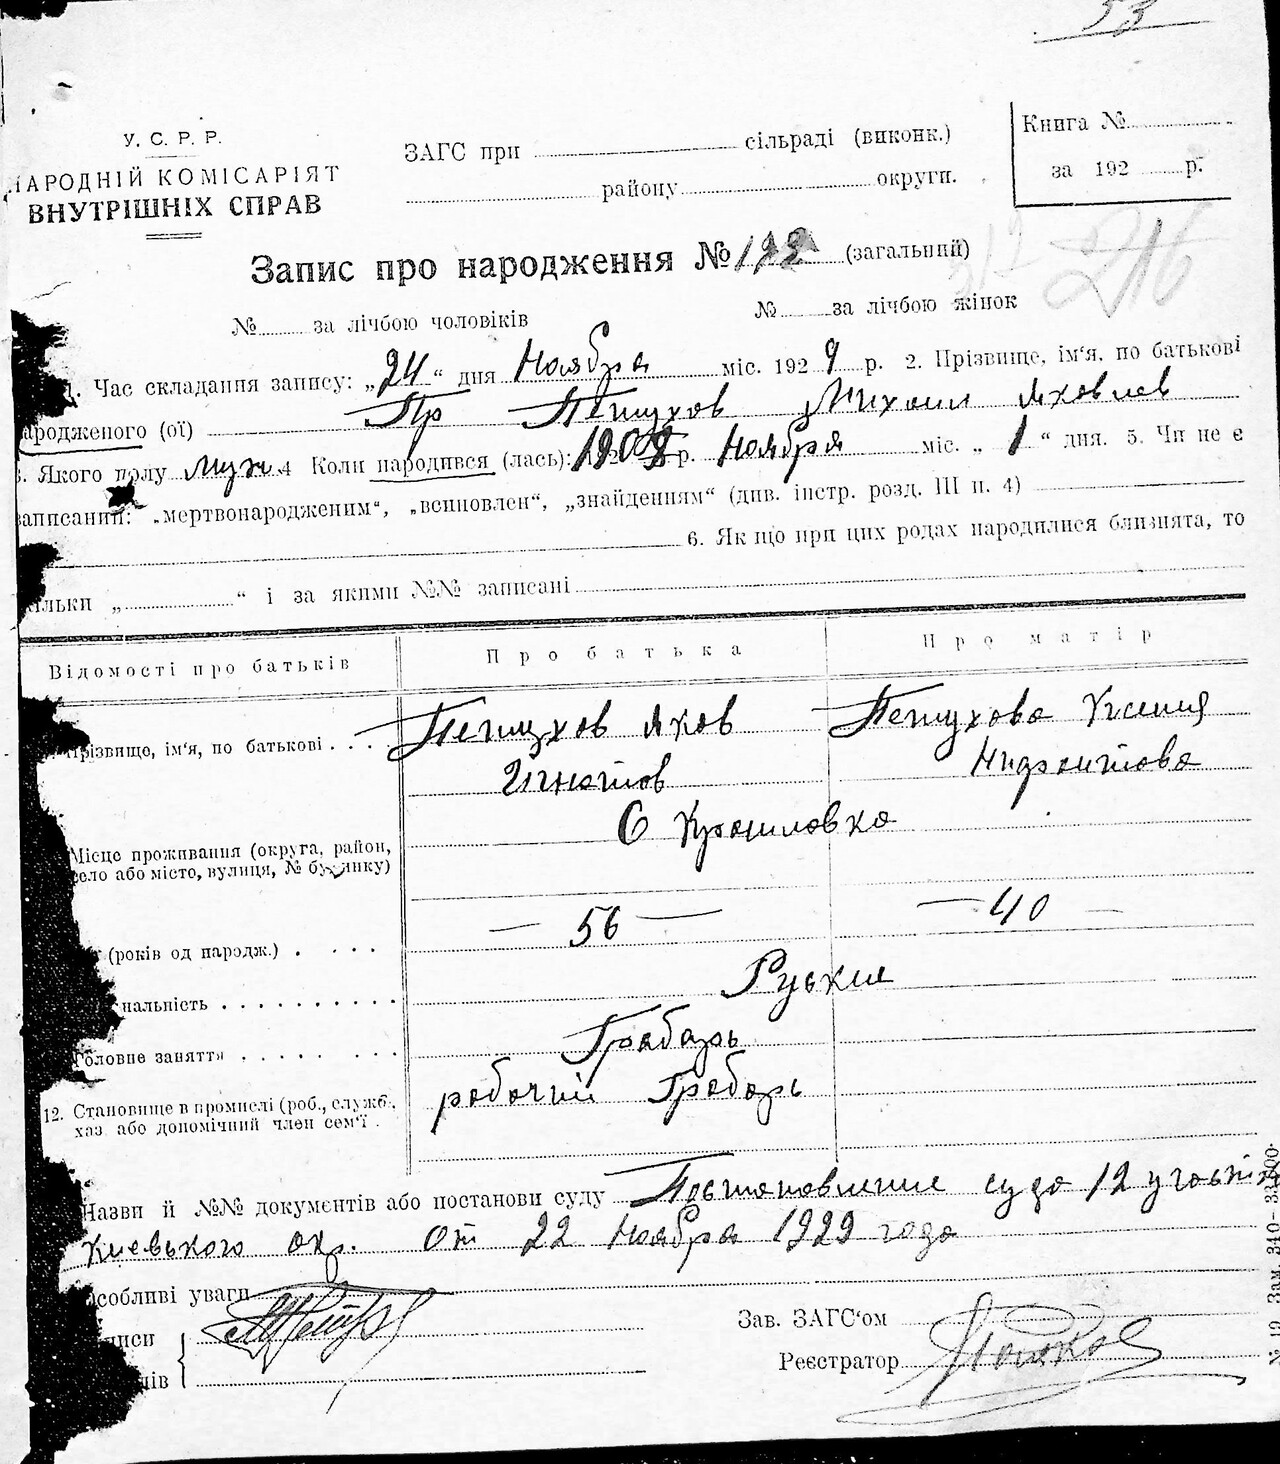 53
У. С. Р. Р.
НАРОДНІЙ КОМІСАРІЯТ
ВНУТРІШНІХ СПРАВ
ЗАГС при сільраді (виконк.)
району округи.
Книга №
за 192 р.
Запис про народження № 122 (загальний)
216
№ за лічбою чоловіків № за лічбою жінок
1. Час складання запису: „24“ дня Ноября міс. 1929 р. 2. Прізвище, ім‘я, по батькові
народженого (ої) Пр Петухов Михаил Яковлев
3. Якого полу муж. 4 Коли народився (лась): р. Ноября міс. „1“ дня. 5. Чи не є
записаний: „мертвонародженим“, „всиновлен“, „знайденням“ (див. інстр. розд. III п. 4)
6. Як що при цих родах народилися близнята, то
кільки „ “ і за якими №№ записані
Відомості про батьків Про батька Про матір
Прізвище, ім‘я, по батькові . . . Петухов Яков Петухова Ксения
Игнатов
С
Місце проживання (округа, район,
село або місто, вулиця, № будинку)
(років од народж.) . . . . — 56 — — 40 —
нальність . . . . . . . . . . Руские
Головне заняття . . . . . . . . Грабарь
12. Становище в промислі (роб., служб., рабочий Грабарь
хаз. або допомічний член сем‘ї .
Назви й №№ документів або постанови суду Постановление суда 12 участка
Киевького окр. От 22 Ноября 1929 года
Особливі уваги
Зав. ЗАГС‘ом
Реєстратор
№ 19 Зам. 340—33.000.